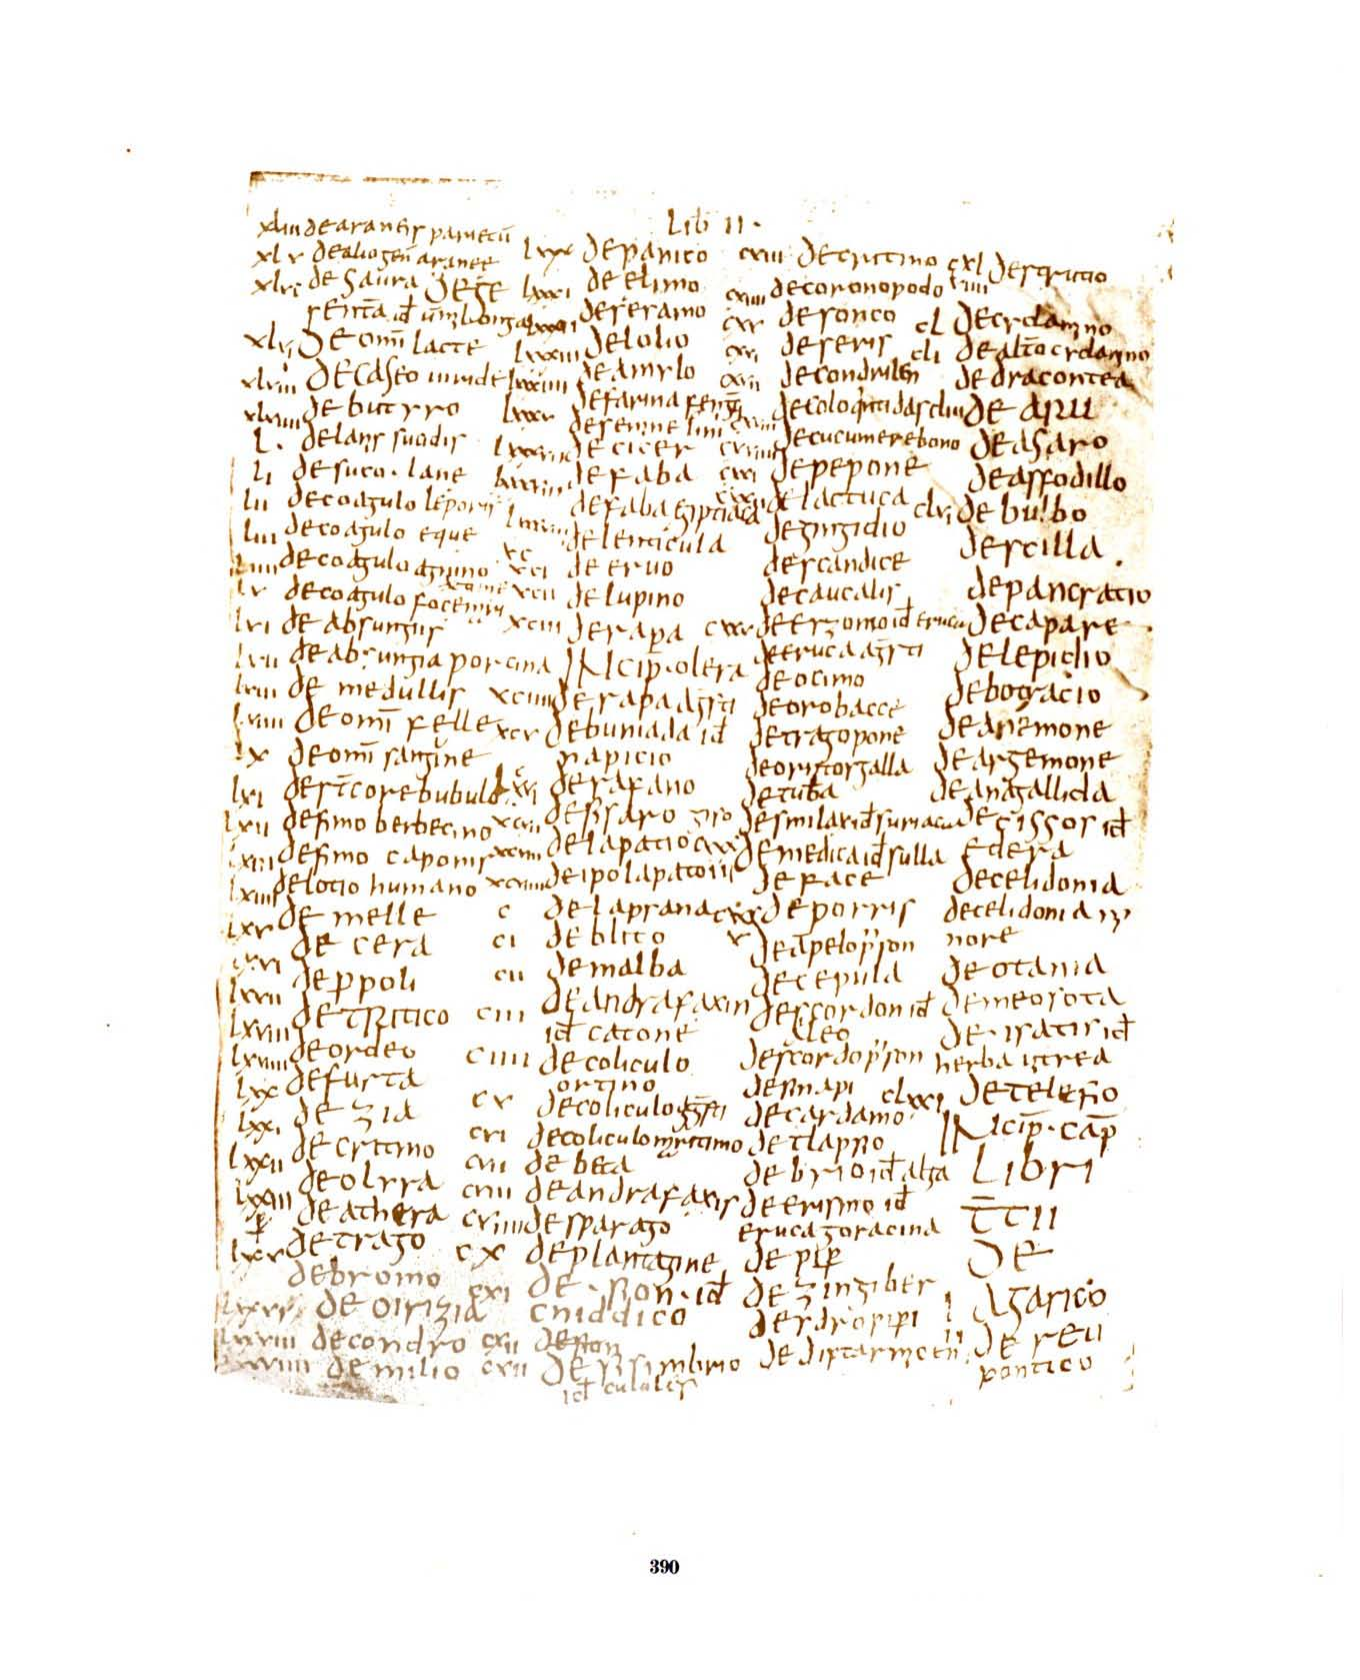 Lib II.
xliiii de araneis parietū
xl v de alio gen̄ aranee
xlvi de saura
de lacte
xlviii de caseo
xlviiii de butyro
l. de lanis sucidis
li de suco. lane
lii de coagulo leporis
liii de coagulo eque
liiii de coagulo agnino
lv de coagulo
lvi de absungiis
lvii de absungia porcina
lviii de medullis
lviiii de om̄i felle
lx de om̄i sanguine
lxi de st̄core bubulo
lxii de fimo berbecino
lxiii de fimo caponis
lxiiii de lotio humano
lxv de melle
lxvi de cera
lxvii de p̱poli
lxviii de tritico
lxviiii de ordeo
lxx de fusta
lxxi de zia
lxxii de critmo
de olyra
lxxiii de athera
lxxv de trago
de bromo
de oirizia
lxxviii de condro
de milio
lxxx de panico
lxxxi de elimo
de seramo
lxxxiii de lolio
lxxxiiii de amylo
lxxxv de farina
de semine lini
de cicer
de faba
de faba egiptiaca
de lenticula
xci de eruo
xcii de lupino
xciii de rapa
INcip̄. olera
xciiii de rapa aḡrti
xcv de buniada id̄
napicio
de rafano
de sisaro
de lapatio
de ipolapatoiis
c de lapsana
ci de blito
cii de malba
ciii de andrafaxin
id̄ catone
ciiii de coliculo
ortino
cv de coliculo aḡrti
cvi de coliculo
cvii de beta
cviii de andrafaxis
cviiii de sparago
cx de plantagine
cxi de . sion . id̄
cniddico
cxii de sion
cxii de sisimbrio
id̄
cxiii de critimo
cxiiii de coronopodo
cxv de sonco
cxvi de seris
cxvii de condrilen
de coloqntidas
de cucumere bono
cxxi de pepone
de lactuca
de gingidio
de scandice
de caucalis
de erzomo id̄ eruca
de eruca aḡrti
de ocimo
de orobacce
de tragopone
de
de tuba
de smilax id̄
de medica id̄ sulla
de face
de porris
de āpelop̄son
de cepula
de scordon id̄
aleo
de scordop̄son
de sinapi
de cardamo
de tlapsio
de brio id̄ alga
de erismo id̄
eruca goracina
de pip̱
de zingiber
de ydropip̱i
de
cxl
viiii de strictio
cl de cyclamno
cli de alt̄o cyclamno
de dracontea
de aru
de asaro
de assodillo
clvi de bulbo
de scilla .
de pancratio
de capare
de lepidio
de botracio
de anemone
de argemone
de anagallida
de cissos id̄
edera
de celidonia
de celidonia m̄
nore
de otania
de meosota
de isatis id̄
herba
clxxi de telefio
INcip̄. cap̄
Libri
t̄tii
i De
Agarico
ii de reu
pontico
390